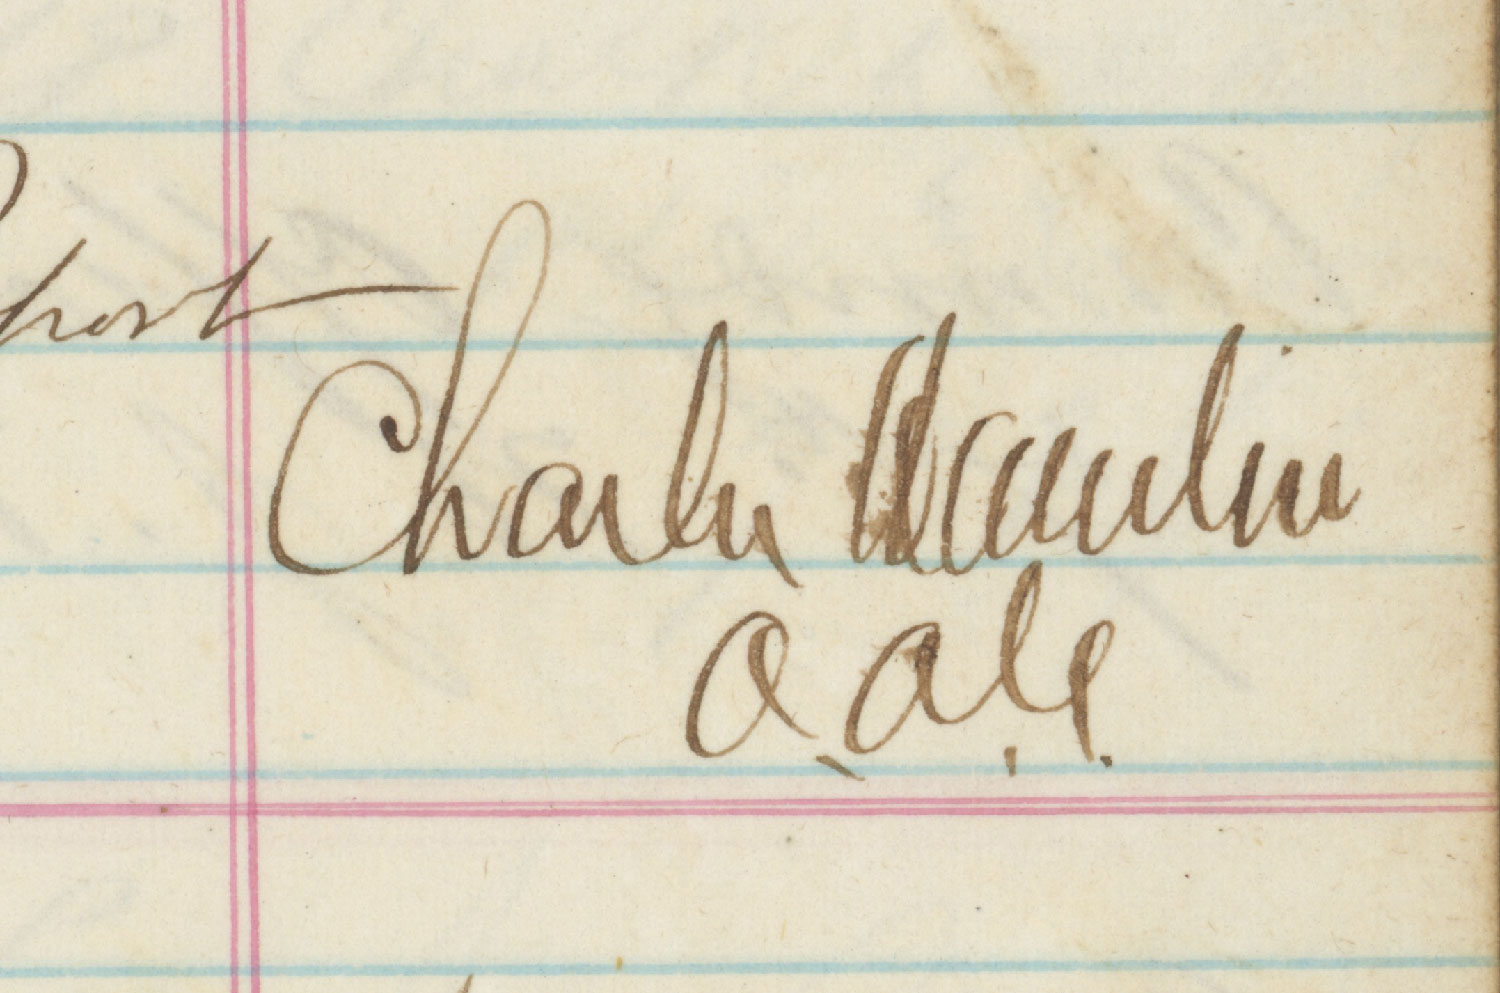 port
Charles Hamlin
A.A.G.